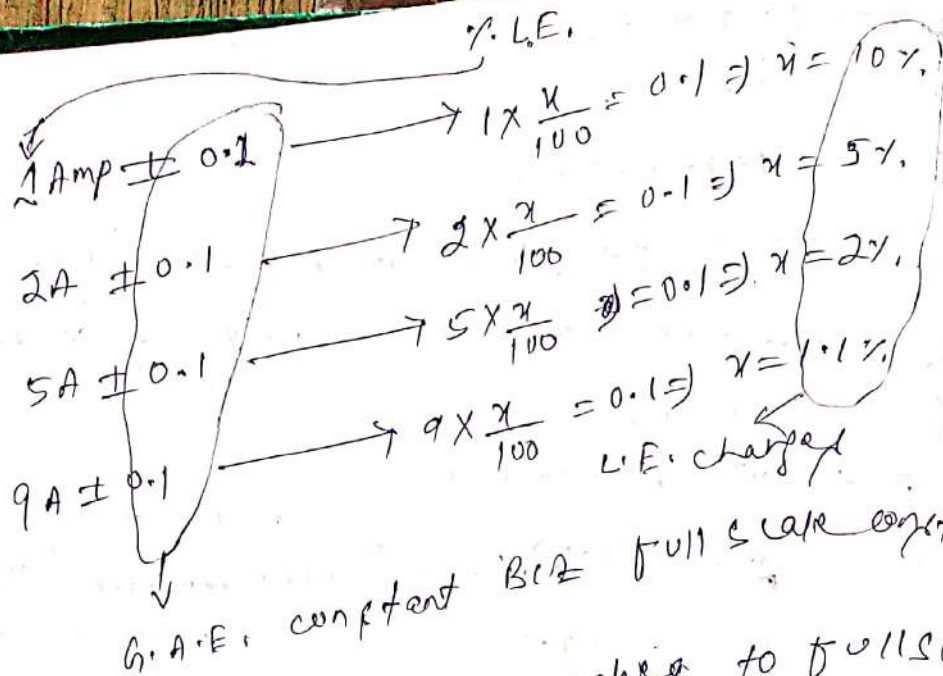 %. L.E.
1 Amp ± 0.1 → 1 × x/100 = 0.1 ⇒ x = 10%.
2A ± 0.1 → 2 × x/100 = 0.1 ⇒ x = 5%.
5A ± 0.1 → 5 × x/100 = 0.1 ⇒ x = 2%.
9A ± 0.1 → 9 × x/100 = 0.1 ⇒ x = 1.1%.
L.E. changed
G.A.E. constant Bcz full scale
to fulls